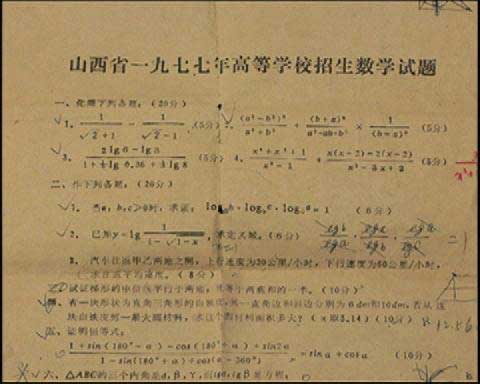 山西省一九七七年高等学校招生数学试题
一、化简下列各题：（20分）
√1. 1/(√2+1) - 1/(√2-1) (5分) √2. (a²-b²)²/(a³+b³) + (b+a)²/(a²-ab+b²) × 1/(b-a)² (5分)
√3. (2lg6-lg3)/(1+½lg0.36+⅓lg8) (5分) 4. (x²+x+1)/(x³-1) + (x(x-2)-2(x-2))/(x²-3x+2) (5分)
二、作下列各题：（20分）
√1. 当a，b，c＞0时，求证： log b·log c·log a=1 (6分)
√2. 已知y=lg 1/(1-√(1-x))，求定义域。(6分) =1
3. 汽车往返甲乙两地之间，上行速度为30公里/小时，下行速度为60公里/小时，
求往返平均速度。(8分)
试证梯形的中位线平行于两底，且等于两底和的一半。(10分)
有一块形状为直角三角形的白铁皮，其一直角边和斜边分别为6dm和10dm，若从这
块白铁皮剪一最大圆材料，求这个圆材料面积多大？(π取3.14) (10分) 12.56
五、证明恒等式：
(1+sin(180°-α)-cos(180°+α)+sin2α)/(1-sin(180°+α)+cos(α-360°)) = sinα+cosα (10分)
√六、△ABC的三个内角是α，β，γ，而tgα，tgβ是方程：